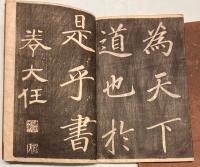 為天下
道也於
是乎書
養大任